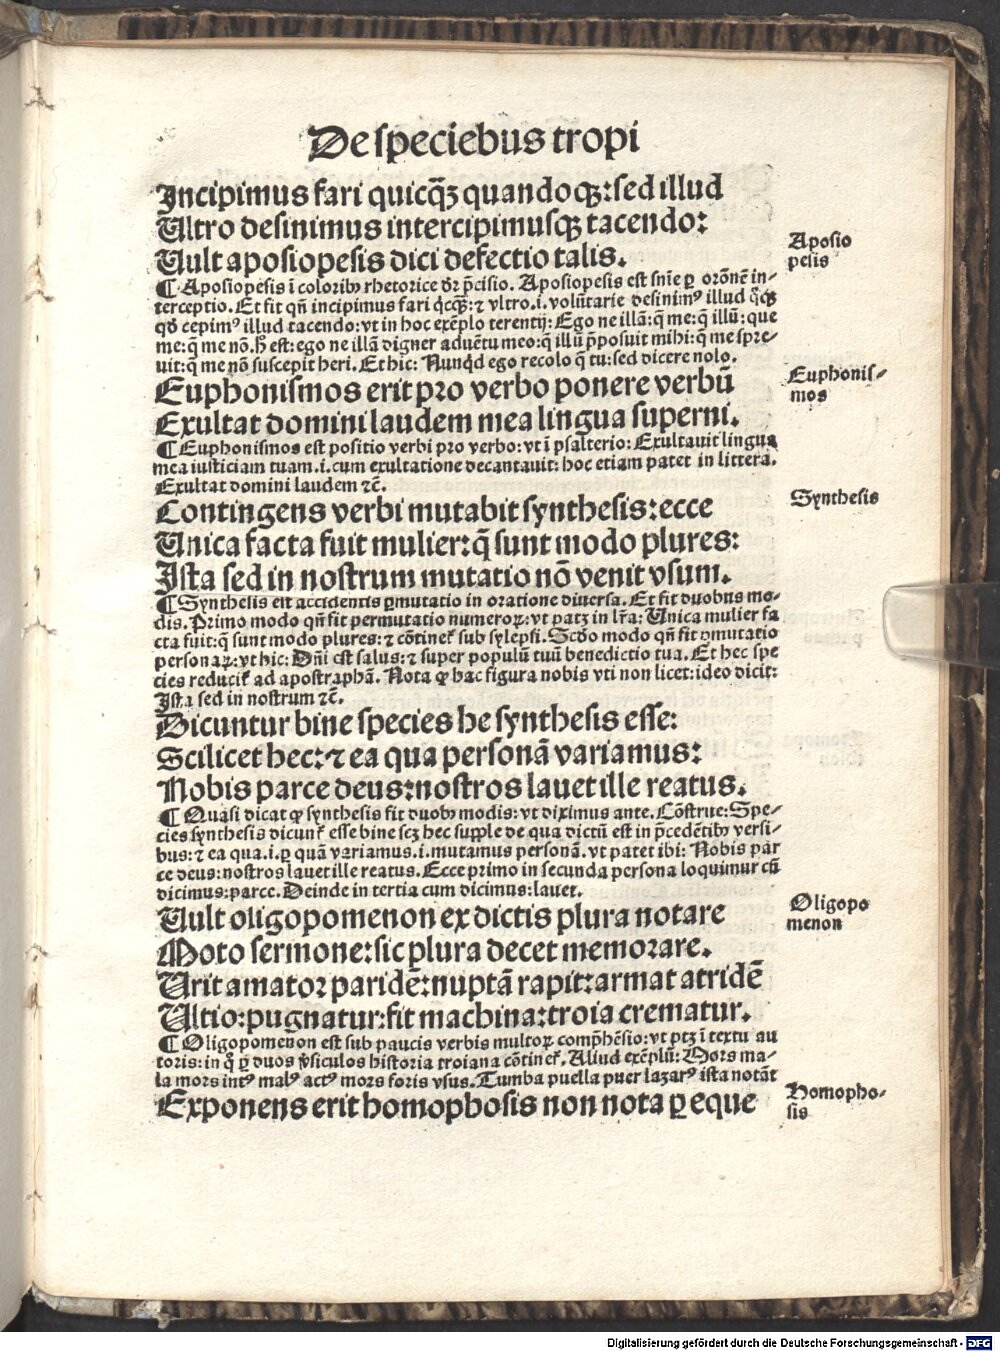 De speciebus tropi
Incipimus fari quicq̃ꝫ quandoqꝫ: sed illud
Ultro desinimus intercipimusqꝫ tacendo:
Uult aposiopesis dici defectio talis.
Aposio
pesis
¶ Aposiopesis ĩ coloribꝰ rhetorice dr̃ p̃cisio. Aposiopesis est sñie ꝑ orõnẽ in-
terceptio. Et fit qñ incipimus fari qͥcqꝫ: ⁊ vltro .i. volũtarie desinimꝰ illud
qḋ cepimꝰ illud tacendo: vt in hoc exẽplo terentij: Ego ne illã: q̃ me: q̃ illũ: que
me: q̃ me nõ. h̃ est: ego ne illã digner aduẽtu meo: q̃ illũ p̃posuit mihi: q̃ me spre-
uit: q̃ me nõ suscepit heri. Et hic: Nunqͥd ego recolo q̃ tu: sed dicere nolo.
Euphonismos erit pro verbo ponere verbũ
Euphonis-
mos
Exultat domini laudem mea lingua superni.
¶ Euphonismos est positio verbi pro verbo: vt ĩ psalterio: Exultauit lingua
mea iusticiam tuam .i. cum exultatione decantauit: hoc etiam patet in littera.
Exultat domini laudem ⁊c̃.
Contingens verbi mutabit synthesis: ecce
Synthesis
Unica facta fuit mulier: q̃ sunt modo plures:
Ista sed in nostrum mutatio nõ venit vsum.
¶ Synthesis est accidentis ꝑmutatio in oratione diuersa. Et fit duobus mo-
dis. Primo modo qñ fit permutatio numeroꝝ: vt patꝫ in lr̃a: Unica mulier fa
cta fuit: q̃ sunt modo plures: ⁊ cõtinet̃ sub sylepsi. Scḋo modo qñ fit ꝑmutatio
personaꝝ: vt hic: Dñi est salus: ⁊ super populũ tuũ benedictio tua. Et hec spe
cies reducit̃ ad apostraphã. Nota ꝙ hac figura nobis vti non licet: ideo dicit:
Ista sed in nostrum ⁊c̃.
Dicuntur bine species he synthesis esse:
Scilicet hec: ⁊ ea qua personã variamus:
Nobis parce deus: nostros lauet ille reatus.
¶ Quasi dicat ꝙ synthesis fit duobꝰ modis: vt diximus ante. Cõstrue: Spe-
cies synthesis dicunt̃ esse bine scꝫ hec supple de qua dictũ est in p̃cedẽtibꝰ versi-
bus: ⁊ ea qua .i. ꝑ quã variamus .i. mutamus personã. vt patet ibi: Nobis par
ce deus: nostros lauet ille reatus. Ecce primo in secunda persona loquimur cũ
dicimus: parce. Deinde in tertia cum dicimus: lauet.
Uult oligopomenon ex dictis plura notare
Oligopo
menon
Moto sermone: sic plura decet memorare.
Urit amator paridẽ: nuptã rapit: armat atridẽ
Ultio: pugnatur: fit machina: troia crematur.
¶ Oligopomenon est sub paucis verbis multoꝝ comp̃hẽsio: vt ptꝫ ĩ textu au
toris: in q̃ ꝑ duos ṽsiculos historia troiana cõtinet̃. Aliud exẽplũ: Mors ma-
la mors intꝰ malꝰ actꝰ mors foris vsus. Tumba puella puer lazarꝰ ista notãt
Exponens erit homophosis non nota ꝑ eque
Homopho-
sis
Digitalisierung gefördert durch die Deutsche Forschungsgemeinschaft - DFG